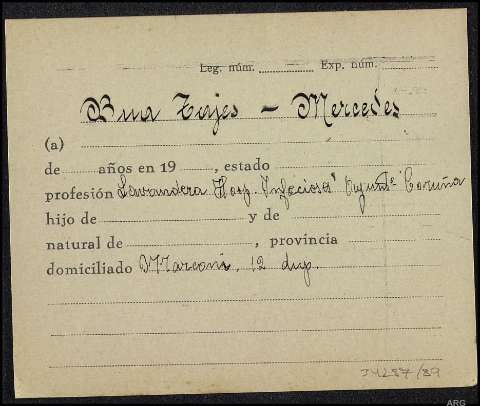 Leg. núm. Exp. núm.
Bua Tajes - Mercedes
(a)
de años en 19 , estado
profesión Lavandera Hosp. Infeciosos Ayuntº Coruña
hijo de y de
natural de , provincia
domiciliado Marconi, 12 dup.
34287/89
ARG